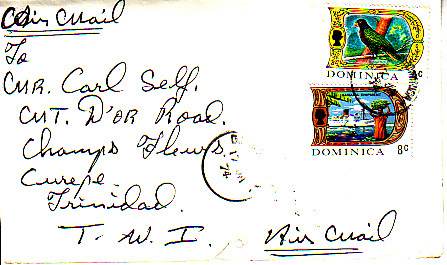 Air Mail
To
MR. Carl Self.
MT. D'OR Road.
Champs Fleurs.
Curepe.
Trinidad.
T. W. I.
Air Mail
DOMINICA
DOMINICA 8c